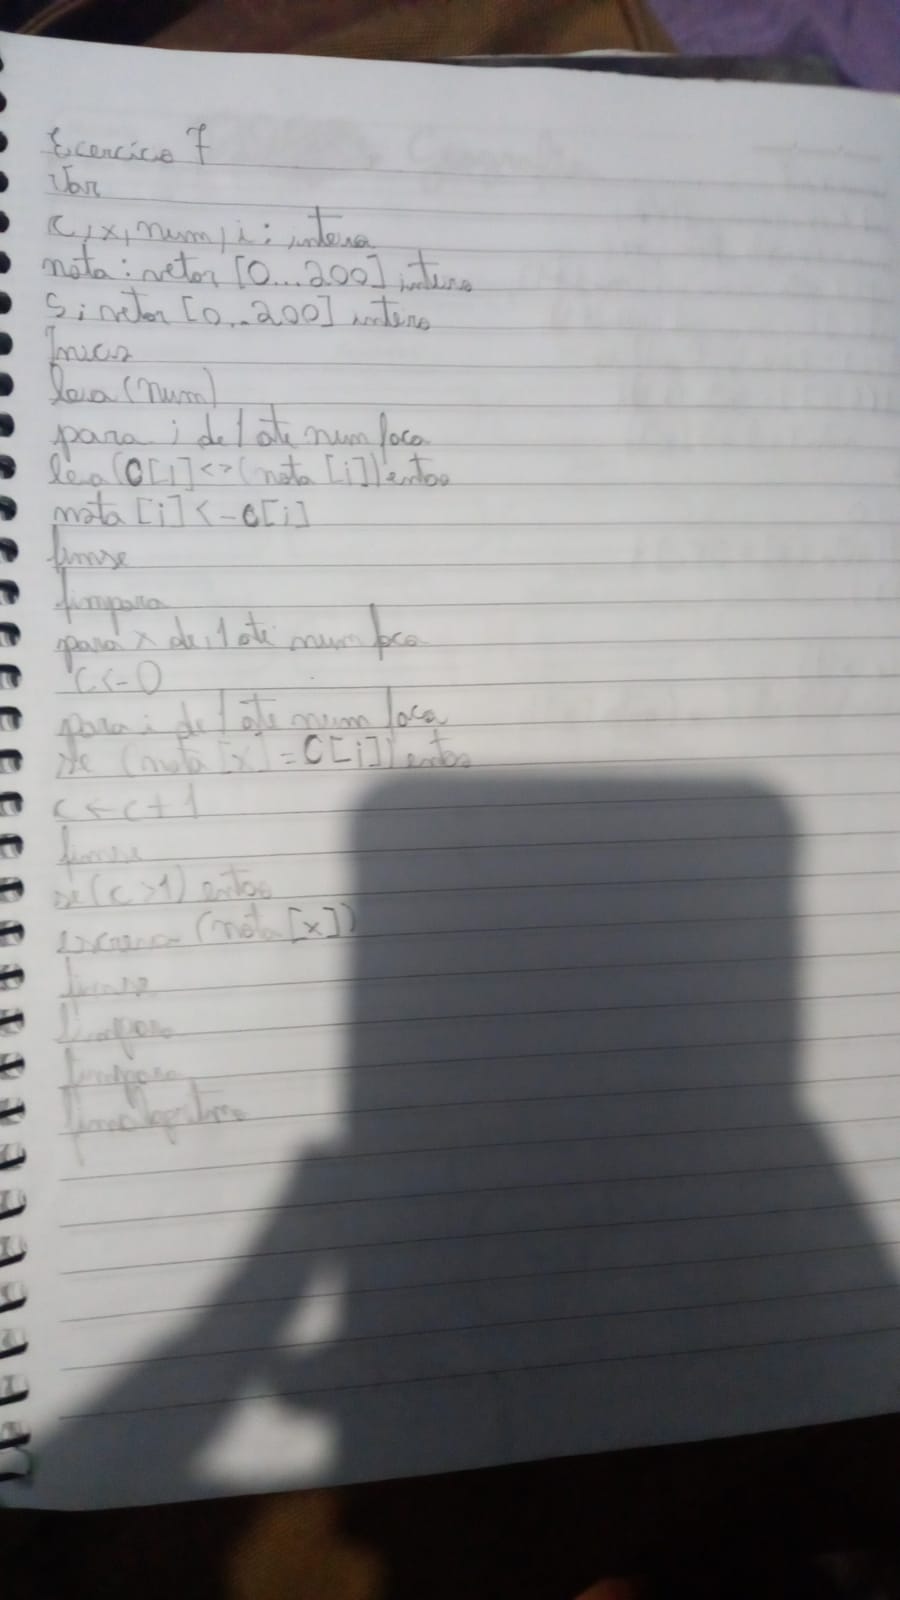 Exercicio 7
Var
c, x, num, i : inteiro
nota : vetor [0...200] inteiro
S : vetor [0...200] inteiro
Inicio
leia (num)
para i de 1 ate num faca
leia (C[i] <> (nota [i]) entao
nota [i] <- C[i]
fimse
fimpara
para x de 1 ate num faca
c <- 0
para i de 1 ate num faca
se (nota [x] = C[i]) entao
c <- c + 1
fimse
se (c >1) entao
escreva (nota [x])
fimse
fimpara
fimpara
fimalgoritmo